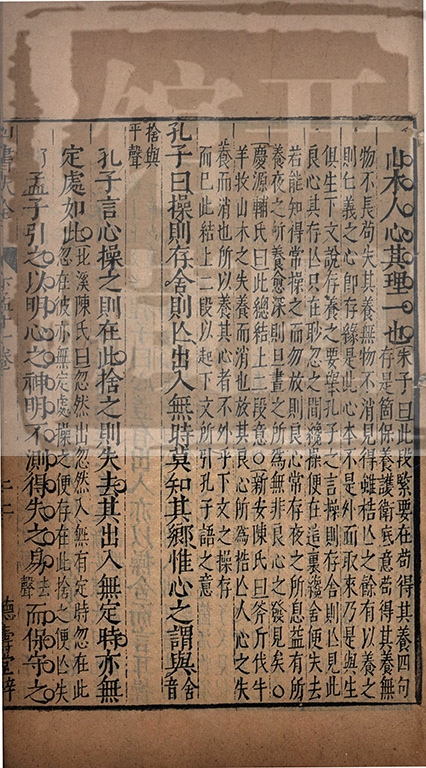 山木人心其理一也朱子曰此段緊要在苟得其養四句
存是箇保養護衛底意苟得其養無
物不長苟失其養無物不消見得雖梏亡之餘有以養之
則仁義之心即存緣是此心本不是外面取來乃是與生
俱生下文說存養之要舉孔子之言操則存舍則亡見此
良心其存亡只在眇忽之間纔操便在這裏纔舍便失去
若能知得常操之而勿放則良心常存夜之所息益有所
養夜之所養愈深則旦晝之所為無非良心之發見矣○
慶源輔氏曰此總結上二段意○新安陳氏曰斧斤伐牛
羊牧山木之失養而消也放其良心所為梏亡人心之失
養而消也所以養其心者不外乎下文之操存
而已此結上二段以起下文所引孔子語之意
孔子曰操則存舍則亡出入無時莫知其鄉惟心之謂與舍音
捨與
平聲
孔子言心操之則在此捨之則失去其出入無定時亦無
定處如此北溪陳氏曰忽然出忽然入無有定時忽在此
忽在彼亦無定處操之便存在此捨之便亡失
了孟子引之以明心之神明不測得失之易去聲而保守之
德壽堂梓